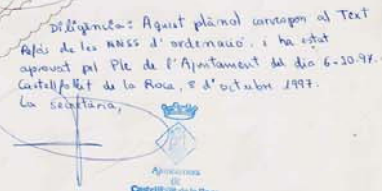 Diligència: Aquest plànol correspon al Text
Refós de les NNSS d'ordenació, i ha estat
aprovat pel Ple de l'Ajuntament del dia 6-10-97.
Castellfollit de la Roca, 8 d'octubre 1997.
La secretària,
Ajuntament
de
Castellfollit de la Roca